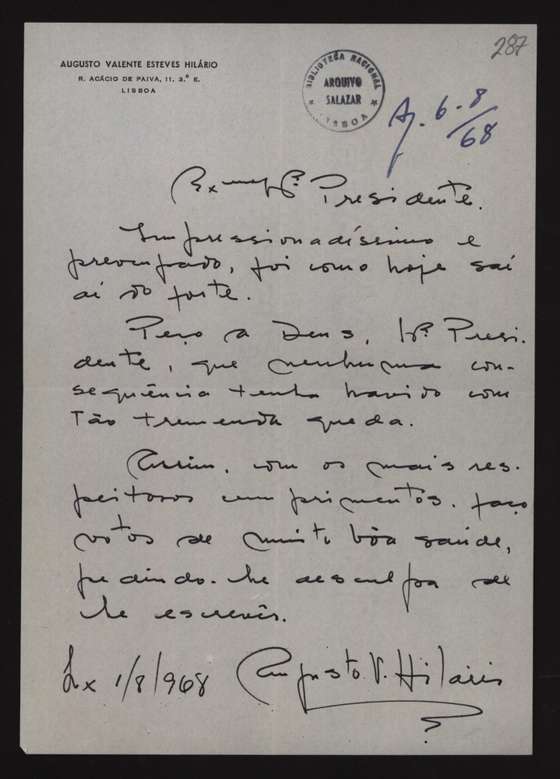 287
AUGUSTO VALENTE ESTEVES HILÁRIO
R. ACÁCIO DE PAIVA, 11, 3.º E.
LISBOA
BIBLIOTECA NACIONAL
ARQUIVO
SALAZAR
LISBOA
6-8/68
Exmº Sr. Presidente.
Impressionadíssimo e
preocupado, foi como hoje saí
aí do forte.
Peço a Deus, Sr. Presi-
dente, que nenhuma con-
sequência tenha havido com
tão tremenda queda.
Assim, com os mais res-
peitosos cumprimentos, faço
votos de muito bôa saúde,
pedindo-lhe desculpa de
lhe escrever.
Lx 1/8/968 Augusto V. Hilário